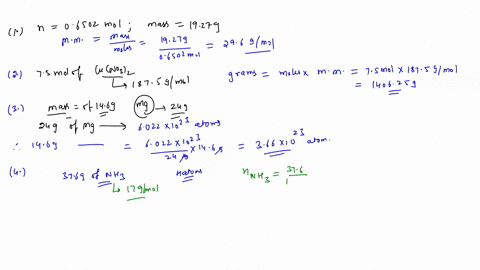 (1.) n = 0.6502 mol ; mass = 19.27g
m.m. = mass/moles = 19.27g/0.6502mol = 29.6 g/mol
(2.) 7.5 mol of Cu(NO3)2
↳ 187.5 g/mol
grams = moles × m.m. = 7.5mol × 187.5 g/mol
= 1406.25g
(3.) mass = of 14.6g mg → 24g
24g of mg → 6.022 × 10^23 atoms
∴ 14.6g — = 6.022 × 10^23/24 g × 14.6 g = 3.66 × 10^23 atom.
(4.) 37.6g of NH3 natoms nNH3 = 37.6/1
↳ 17g/mol